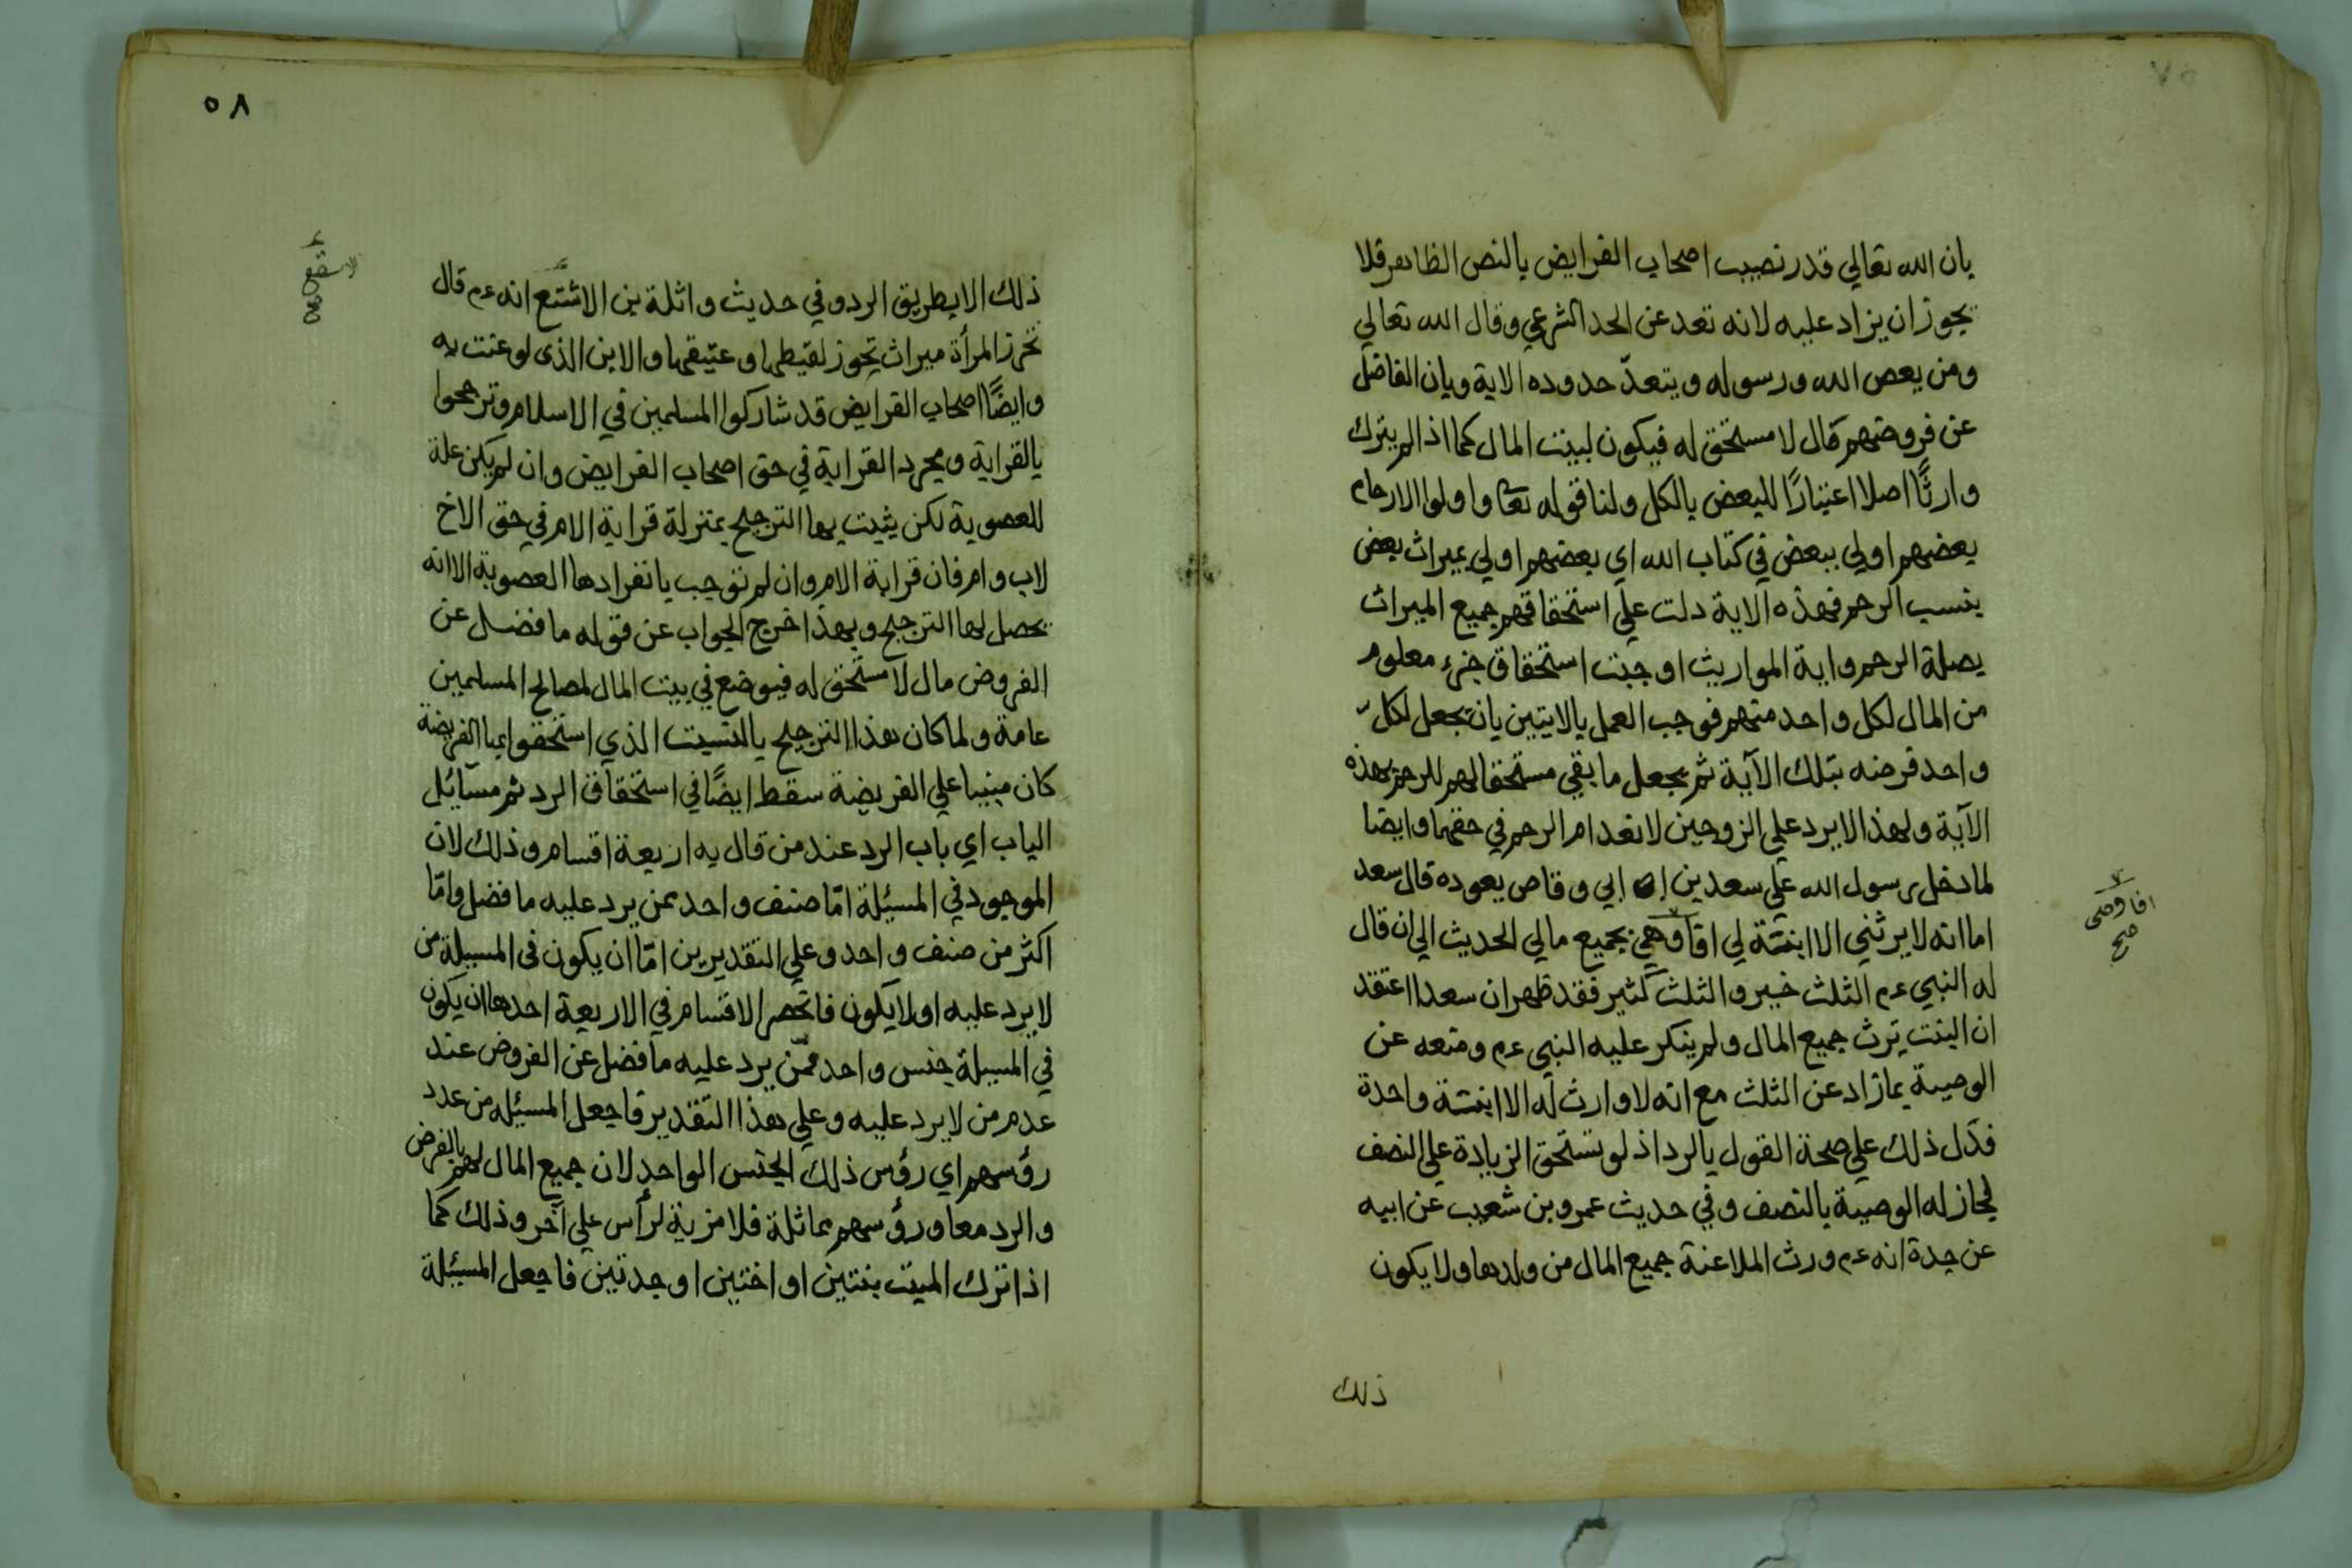 بان الله تعالي قدر نصيب اصحاب الفرايض بالنص الظاهر فلا
يجوز ان يزاد عليه لانه تعد عن الحد الشرعي وقال الله تعالي
ومن يعص الله ورسوله ويتعدّ حدوده الاية وبان الفاضل
عن فروضهم مال لا مستحق له فيكون لبيت المال كما اذا لم يترك
وارثًا اصلا اعتبارًا للبعض بالكل ولنا قوله تعا واولوا الارحام
بعضهم اولي ببعض في كتاب الله اي بعضهم اولي بميراث بعض
بنسب الرحم فهذه الاية دلت علي استحقاقهم جميع الميراث
بصلة الرحم واية المواريث اوجبت استحقاق جزء معلوم
من المال لكل واحد منهم فوجب العمل بالايتين بان تجعل لكل
واحد فرضه بتلك الآية ثم يجعل ما بقي مستحقا لهم للرحم بهذه
الآية ولهذا لا يرد علي الزوجين لانعدام الرحم في حقهما وايضا
لما دخل رسول الله علي سعد بن ابي وقاص يعوده قال سعد
اما انه لا يرثني الا ابنتة لي افاوصي بجميع مالي الحديث الي ان قال
له النبي عم الثلث خير والثلث كثير فقد ظهر ان سعدا اعتقد
ان البنت ترث جميع المال ولم ينكر عليه النبي عم ومنعه عن
الوصية بما زاد عن الثلث مع انه لا وارث له الا ابنتة واحدة
فدّل ذلك علي صحة القول بالرد اذ لو تستحق الزيادة علي النصف
لجاز له الوصية بالنصف وفي حديث عمرو بن شعيب عن ابيه
عن جدة انه عم ورث الملاعنة جميع المال من ولدها ولا يكون
افاوصى
صح
ذلك
٥٨
ذلك الا بطريق الرد وفي حديث واثلة بن الاشتع انه عم قال
تحرز المرأة ميراث تحوز لقيطها وعتيقها والابن الذى لوعنت به
وايضًا اصحاب الفرايض قد شاركوا المسلمين في الاسلام وترجحوا
بالقرابة ومجرد القرابة في حق اصحاب الفرايض وان لم يكن علة
للعصوبة لكن يثبت بها الترجيح بمنزلة قرابة الام في حق الاخ
لاب وام فان قرابة الام وان لم توجب بانفرادها العصوبة الا انه
يحصل لها الترجيح وبهذا خرج الجواب عن قوله ما فضل عن
الفروض مال لا مستحق له فيوضع في بيت المال لمصالح المسلمين
عامة ولما كان هذا الترجيح بالنسبت الذي استحقوا بها الفريضة
كان مبنيا علي الفريضة سقط ايضًا في استحقاق الرد ثم مسائل
الباب اي باب الرد عند من قال به اربعة اقسام وذلك لان
الموجود في المسئلة امّا صنف واحد ممن يرد عليه ما فضل وامّا
اكثر من صنف واحد وعلي التقديرين امّا ان يكون فى المسيلة من
لا يرد عليه او لا يكون فانحصر الاقسام في الاربعة احدها ان يكون
في المسيلة جنس واحد ممّن يرد عليه ما فضل عن الفروض عند
عدم من لا يرد عليه وعلي هذا التقدير فاجعل المسئله من عدد
رؤسهم اي رؤس ذلك الجنس الواحد لان جميع المال لهم بالفرض
والرد معا ورؤسهم مماثلة فلا مزية لرأس علي آخر وذلك كما
اذا ترك الميت بنتين او اختين او جدتين فاجعل المسئلة